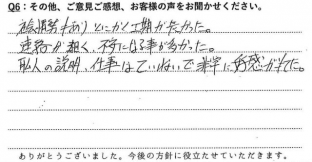 Q6：その他、ご意見ご感想、お客様の声をお聞かせください。
とにかく工期が長かった。
連絡が無く、不安になる事が多かった。
職人の説明、仕事はていねいで非常に好感がもてた。
ありがとうございました。今後の方針に役立たせていただきます。